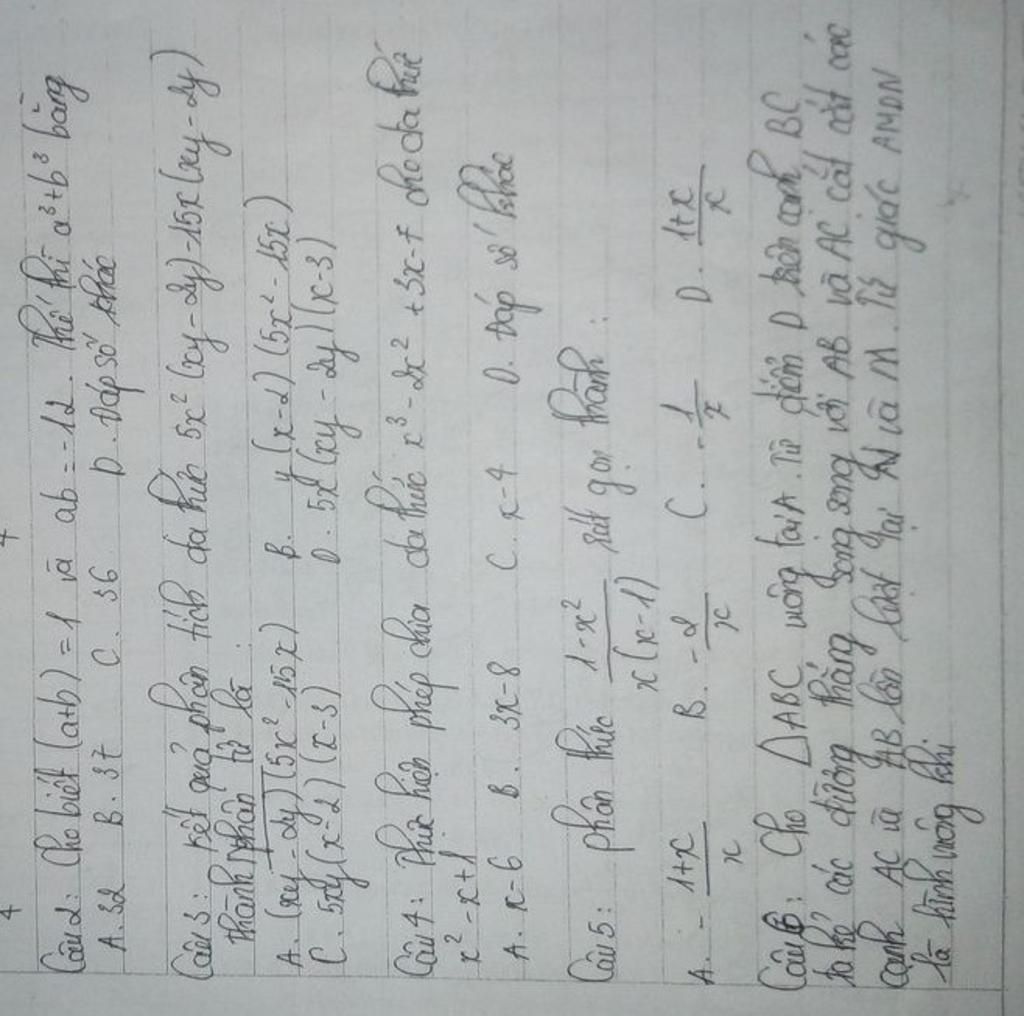 Câu 2: Cho biết (a+b) = 1 và ab = -12. Thế thì a³+b³ bằng
A. 32 B. 37 C. 36 D. Đáp số khác
Câu 3: Kết quả phân tích đa thức 5x² (xy - 2y) - 15x (xy - 2y)
thành phân tử là
A. (xy - 2y) (5x² - 15x) B. y (x - 2) (5x² - 15x)
C. 5xy (x - 2) (x - 3) D. 5x (xy - 2y) (x - 3)
Câu 4: Thực hiện phép chia đa thức x³ - 2x² + 3x - 7 cho đa thức
x² - x + 1
A. x - 6 B. 3x - 8 C. x - 4 D. Đáp số khác
Câu 5: phân thức (1 - x²)/(x(x - 1)) rút gọn thành:
A. - (1+x)/x B. - 2/x C. - 1/x D. (1+x)/x
Câu 6: Cho △ABC vuông tại A. Từ điểm D trên cạnh BC
ta kẻ các đường thẳng song song với AB và AC cắt cắt các
cạnh AC và AB lần lượt tại N và M. Tứ giác AMDN
là hình vuông khi